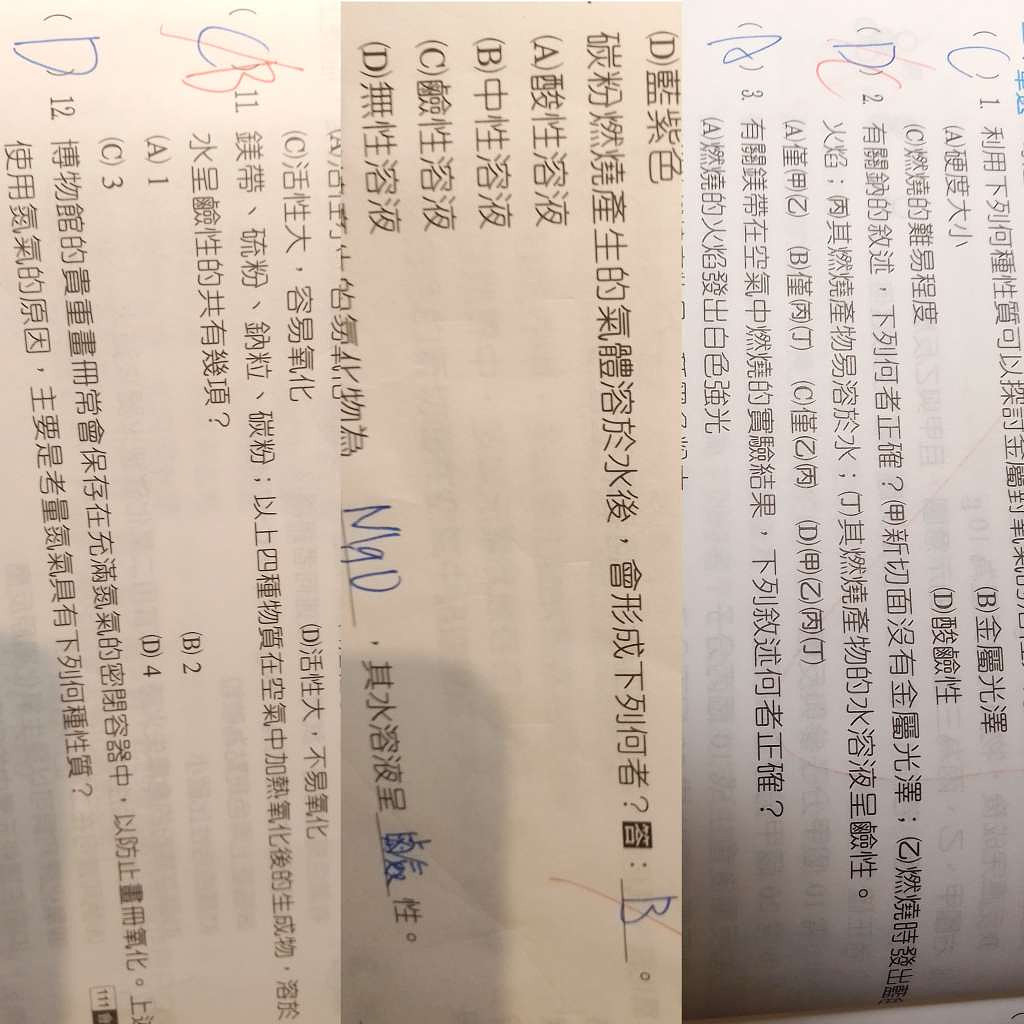 (C) 1. 利用下列何種性質可以探討金屬對氧氣的活性
(A)硬度大小 (B)金屬光澤
(C)燃燒的難易程度 (D)酸鹼性
(D) C 2. 有關鈉的敘述,下列何者正確?(甲)新切面沒有金屬光澤;(乙)燃燒時發出藍
火焰;(丙)其燃燒產物易溶於水;(丁)其燃燒產物的水溶液呈鹼性。
(A)僅(甲)(乙) (B)僅(丙)(丁) (C)僅(乙)(丙) (D)(甲)(乙)(丙)(丁)
(A) 3. 有關鎂帶在空氣中燃燒的實驗結果,下列敘述何者正確?
(A)燃燒的火焰發出白色強光
(D)藍紫色
碳粉燃燒產生的氣體溶於水後,會形成下列何者?答:B。
(A)酸性溶液
(B)中性溶液
(C)鹼性溶液
(D)無性溶液
氧化物為 MgO,其水溶液呈 鹼 性。
(C)活性大,容易氧化 (D)活性大,不易氧化
(C) B 11. 鎂帶、硫粉、鈉粒、碳粉;以上四種物質在空氣中加熱氧化後的生成物,溶於
水呈鹼性的共有幾項?
(A) 1 (B) 2
(C) 3 (D) 4
(D) 12. 博物館的貴重畫冊常會保存在充滿氮氣的密閉容器中,以防止畫冊氧化。上述
使用氮氣的原因,主要是考量氮氣具有下列何種性質?
111會